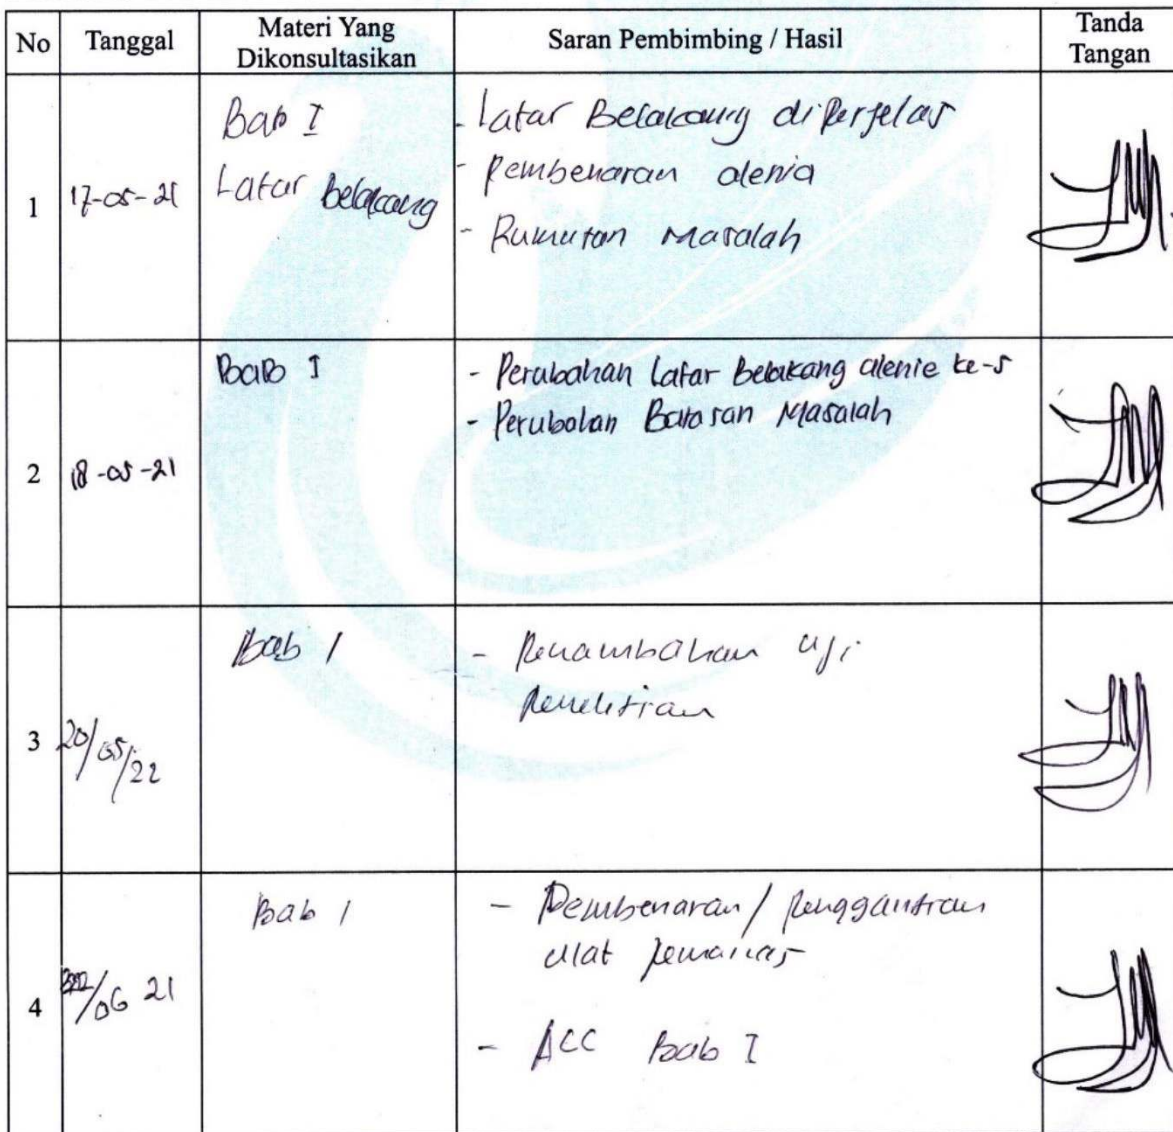 No Tanggal Materi Yang Dikonsultasikan Saran Pembimbing / Hasil Tanda Tangan
1 17-05-21
Bab I
Latar belakang
- Latar Belakang diperjelas
- pembenaran alenia
- Rumusan Masalah
2 18-05-21
BaB I
- Perubahan Latar Belakang alenie ke-5
- Perubahan Batasan Masalah
3 20/05/22
Bab 1
- Penambahan uji
penelitian
4 /06 21
Bab 1
- Pembenaran / penggantian
alat pemanas
- ACC Bab I